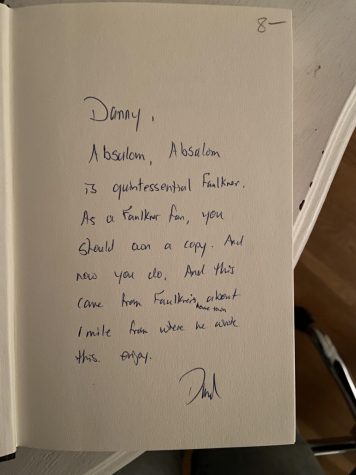 8—
Danny,
Absalom, Absalom
is quintessential Faulkner.
As a Faulkner fan, you
should own a copy. And
now you do. And this
came from Faulkner's home town, about
1 mile from where he wrote
this. Enjoy.
David